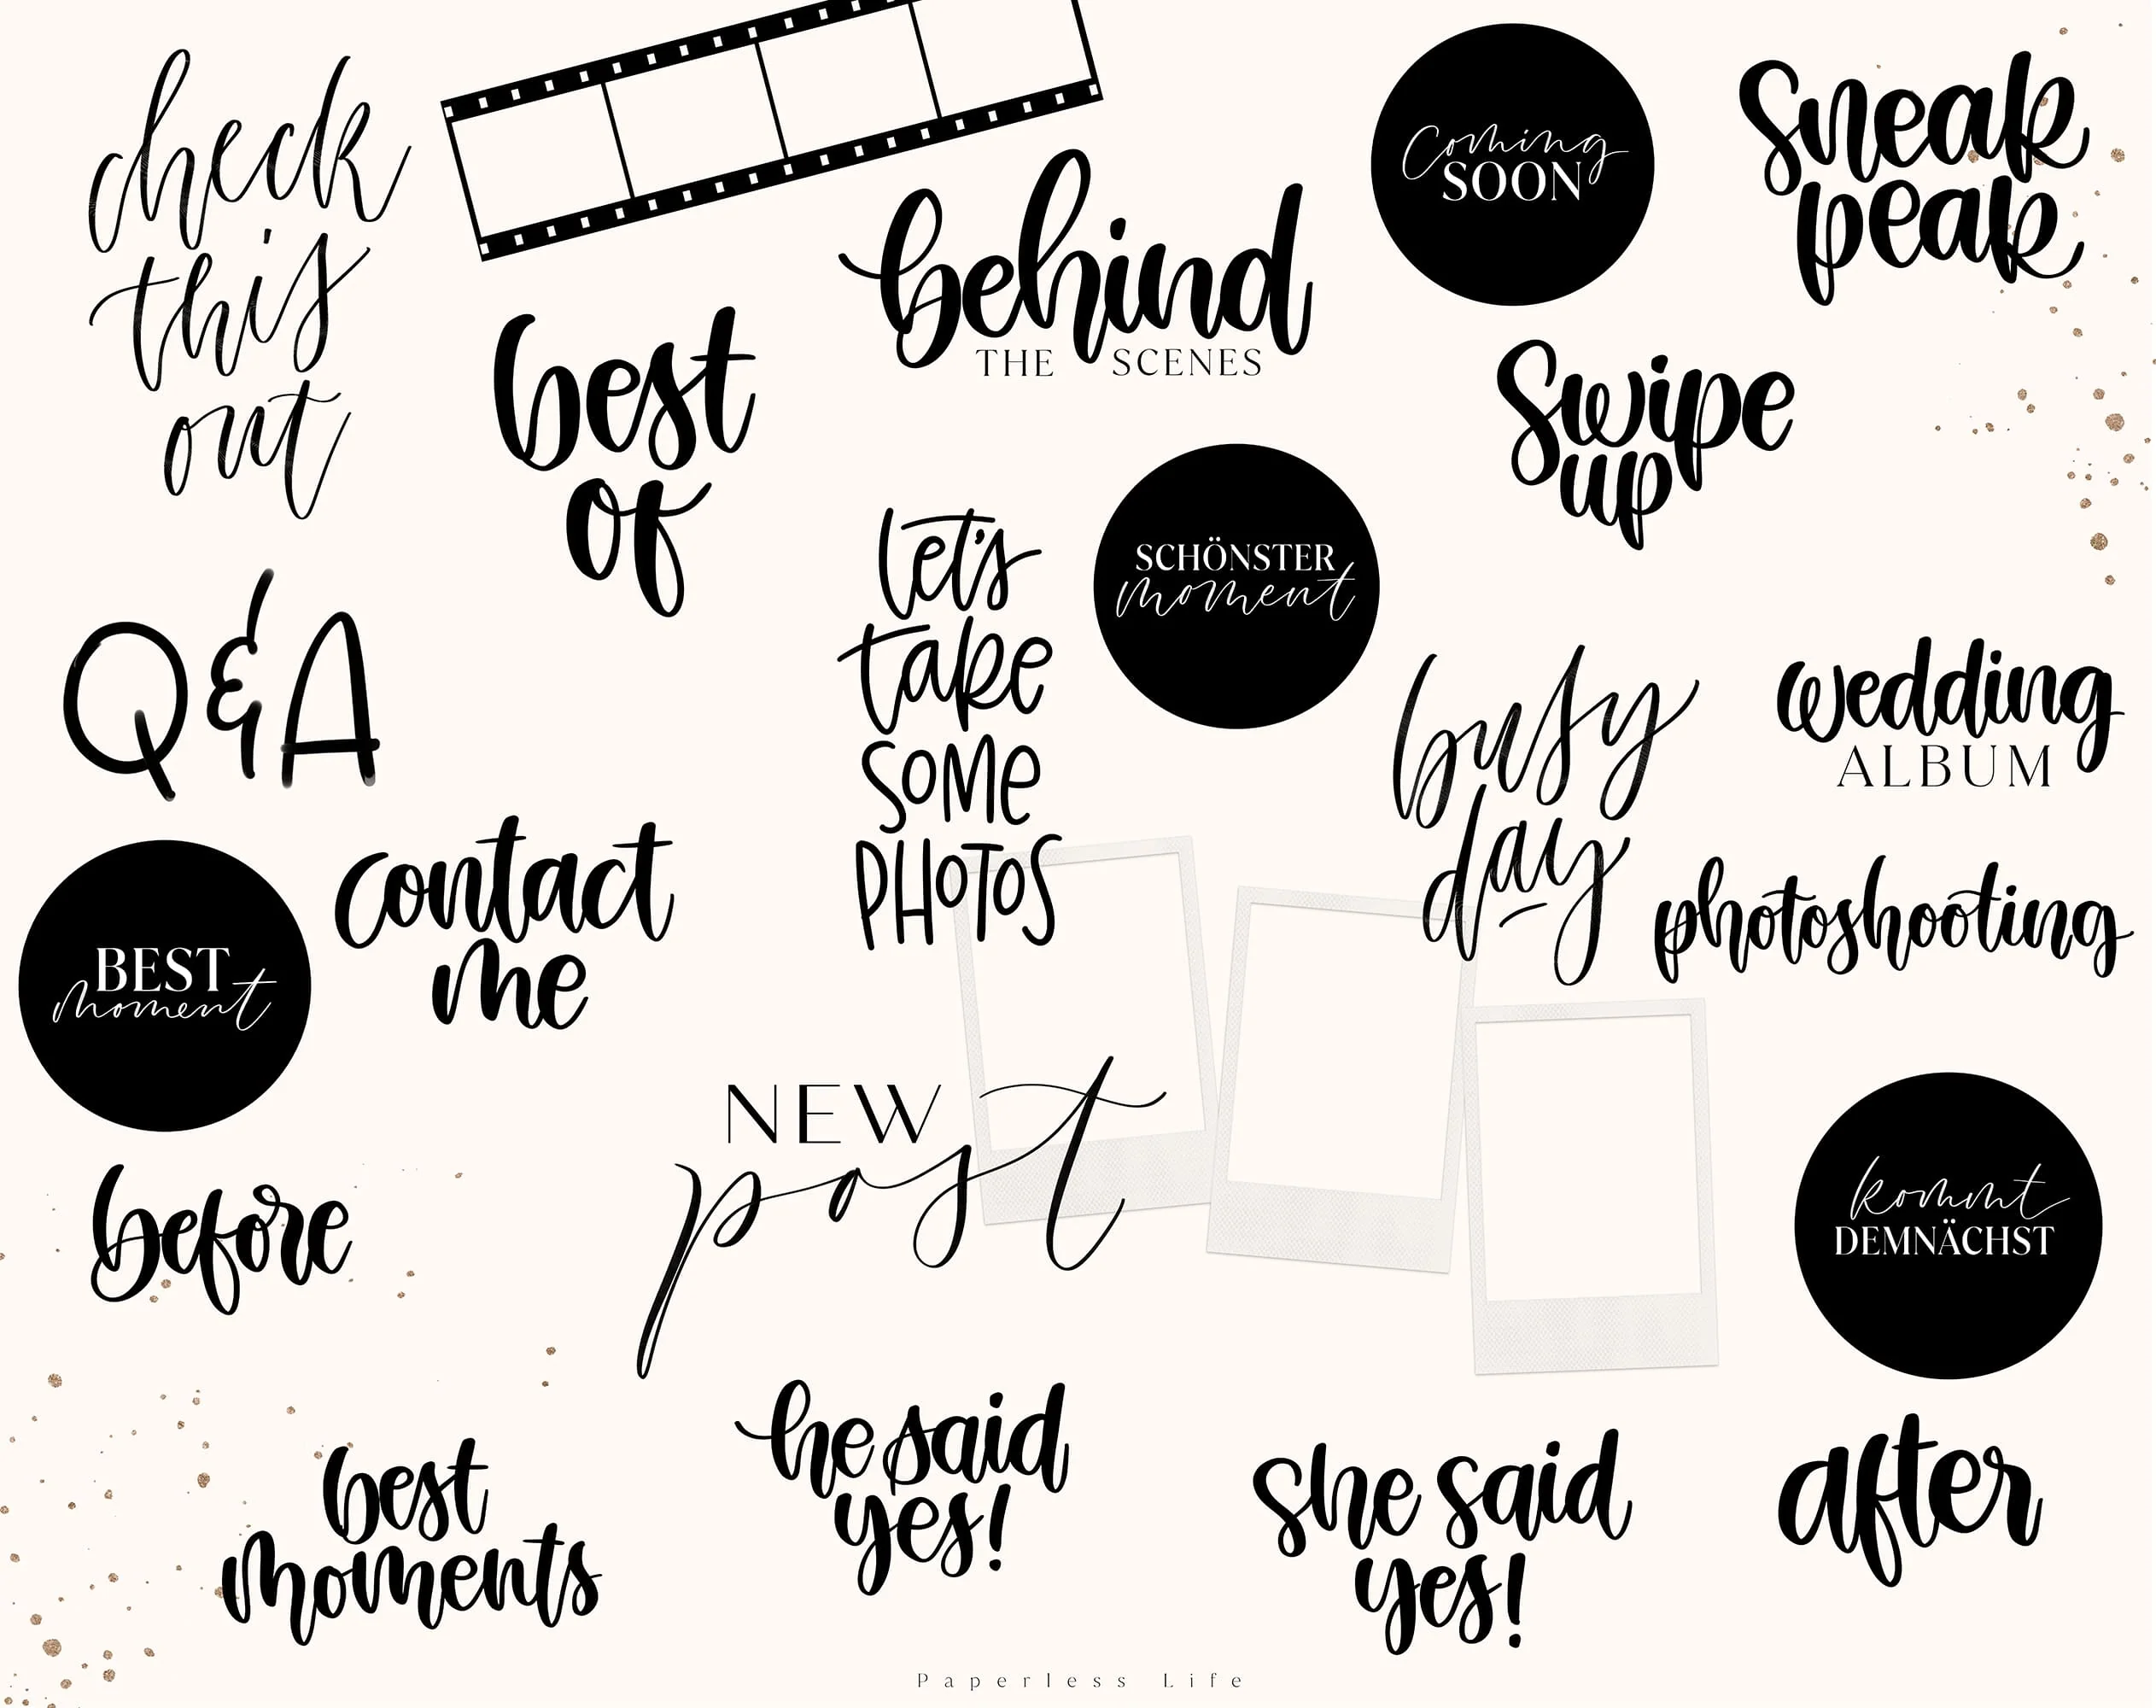 check
this
out
behind
THE SCENES
coming
SOON
sneak
peak
best
of
Swipe
up
let's
take
some
PHOTOS
SCHÖNSTER
moment
Q&A
busy
day
wedding
ALBUM
contact
me
photoshooting
BEST
moment
NEW
post
kommt
DEMNÄCHST
before
he said
yes!
she said
yes!
after
best
moments
Paperless Life